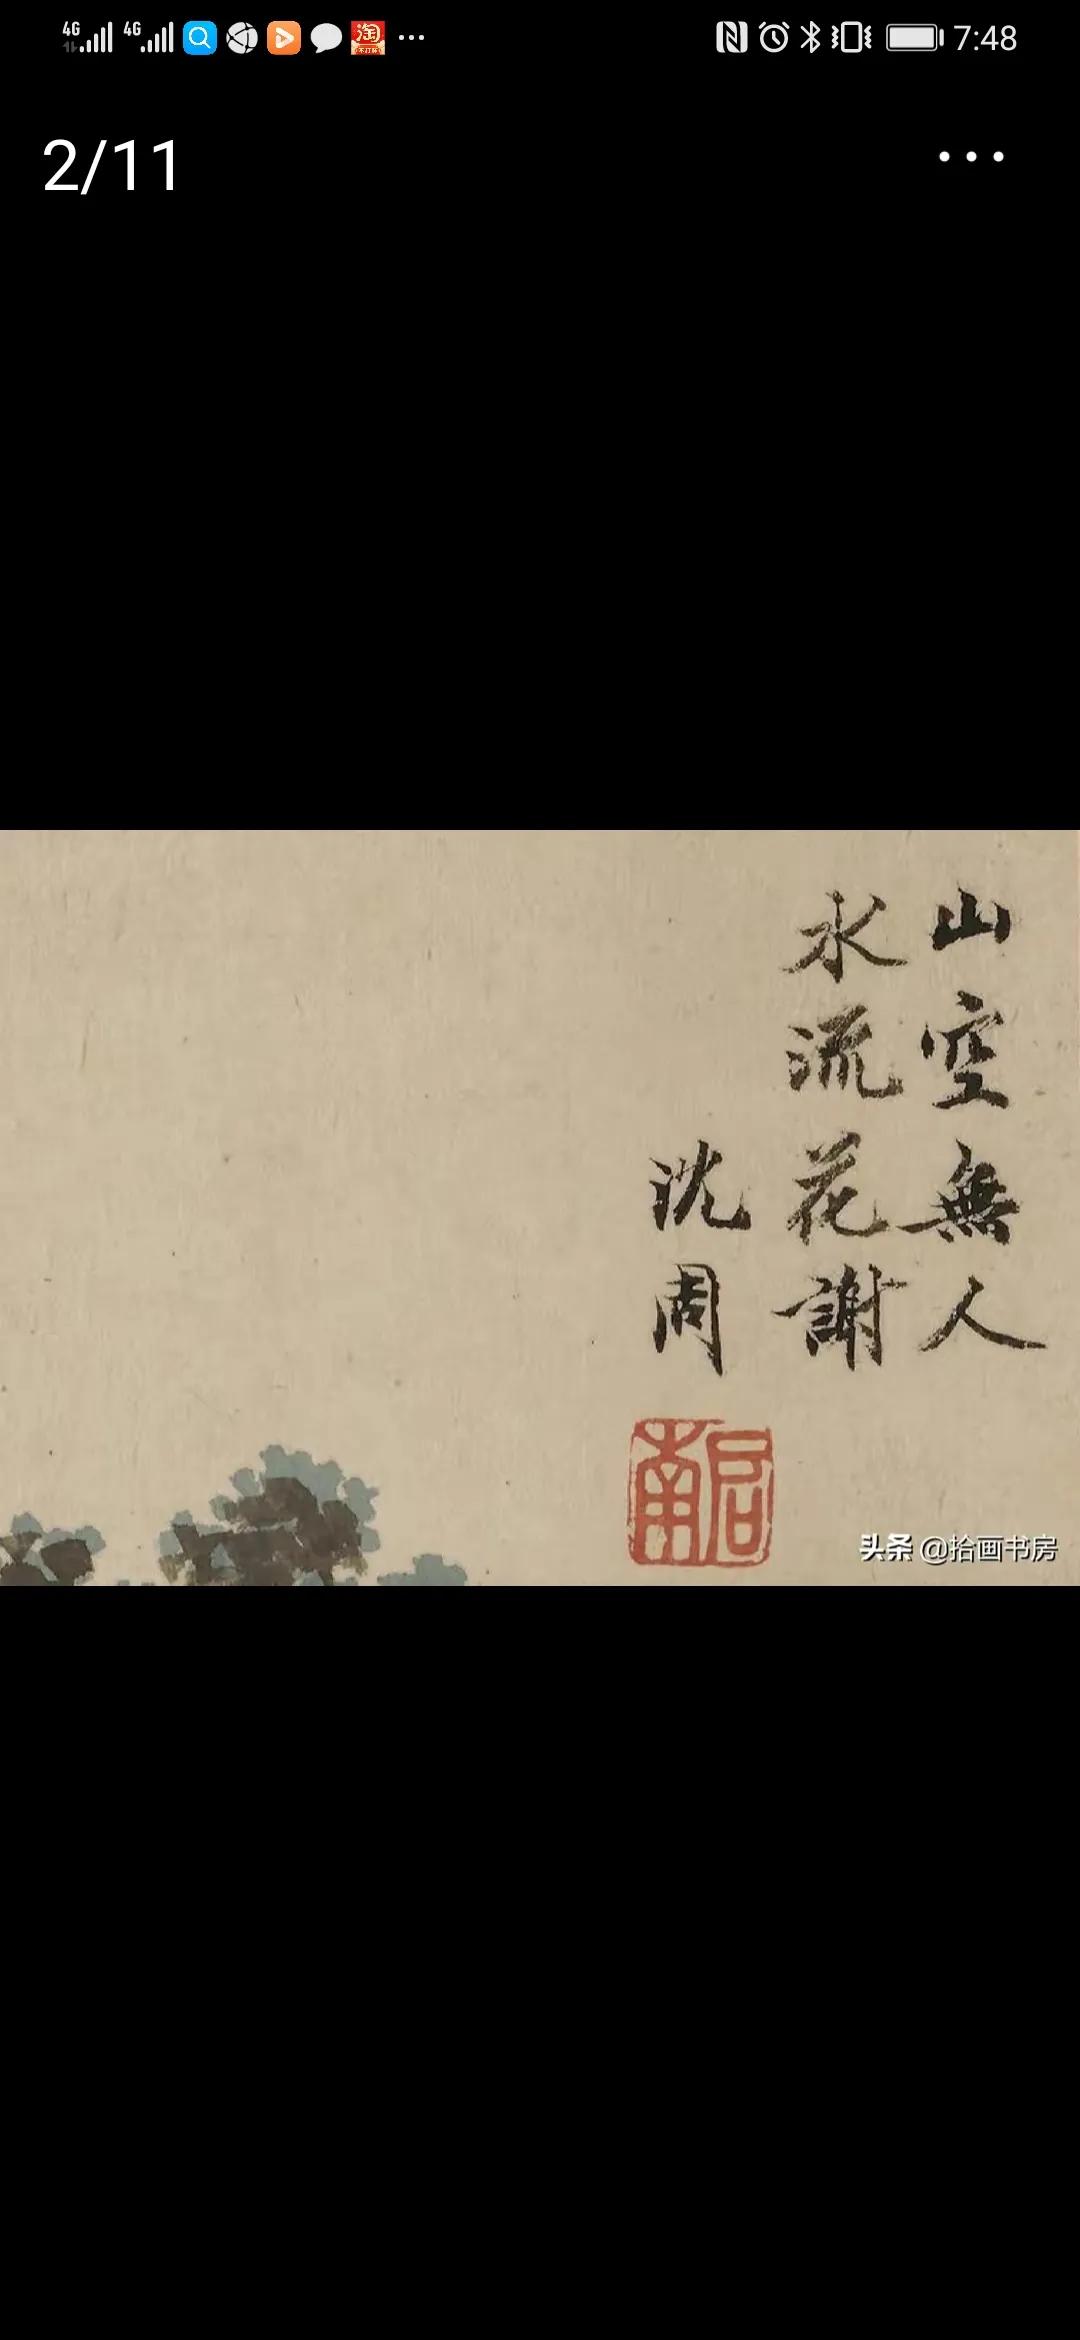 4G 4G 淘 7:48
2/11
山空無人
水流花謝
沈周
啟南
头条 @拾画书房